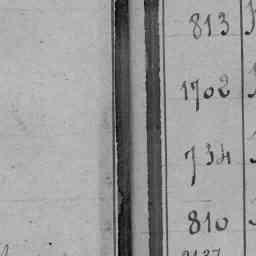 813
1702
734
810